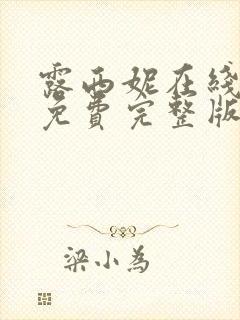 露西妮在线
免费完整版
梁小为